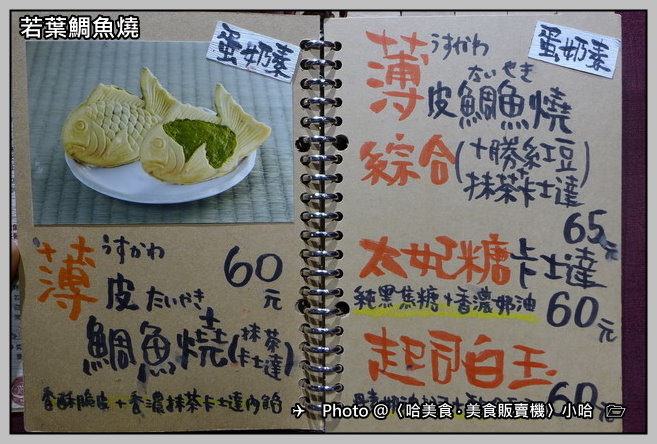 若葉鯛魚燒
蛋奶素
薄うすかわ
皮たいやき
60元
鯛魚燒(抹茶卡士達)
香酥脆皮+香濃抹茶卡士達內餡
蛋奶素
薄うすかわ
皮鯛魚燒たいやき
綜合(十勝紅豆
抹茶卡士達
65元
太妃糖卡士達
純黑焦糖+香濃奶油 60元
起司白玉
60元
Photo @〈哈美食‧美食販賣機〉小哈